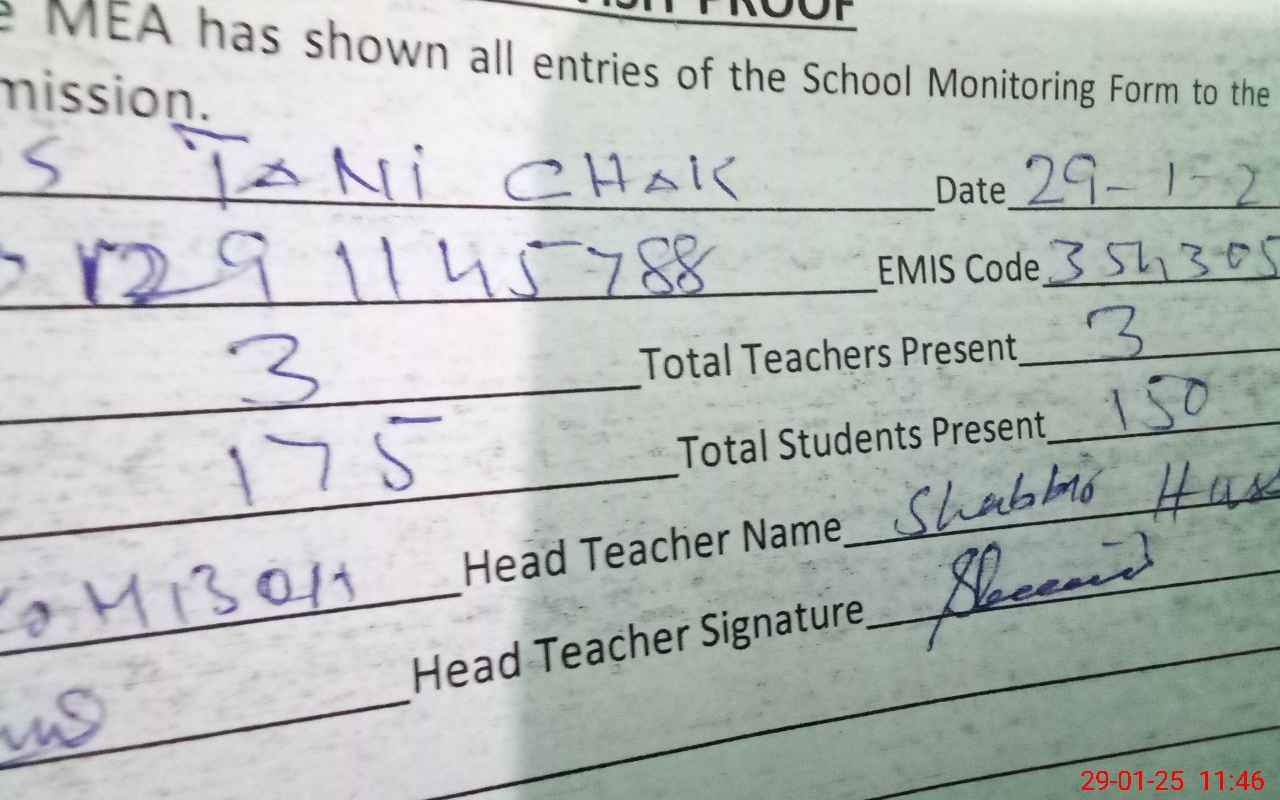 VISIT PROOF
e MEA has shown all entries of the School Monitoring Form to the
mission.
S TANI CHAK Date 29-1-2
1291145788 EMIS Code 354305
3 Total Teachers Present 3
175 Total Students Present 150
Head Teacher Name Shabbir Hus
Head Teacher Signature
29-01-25 11:46